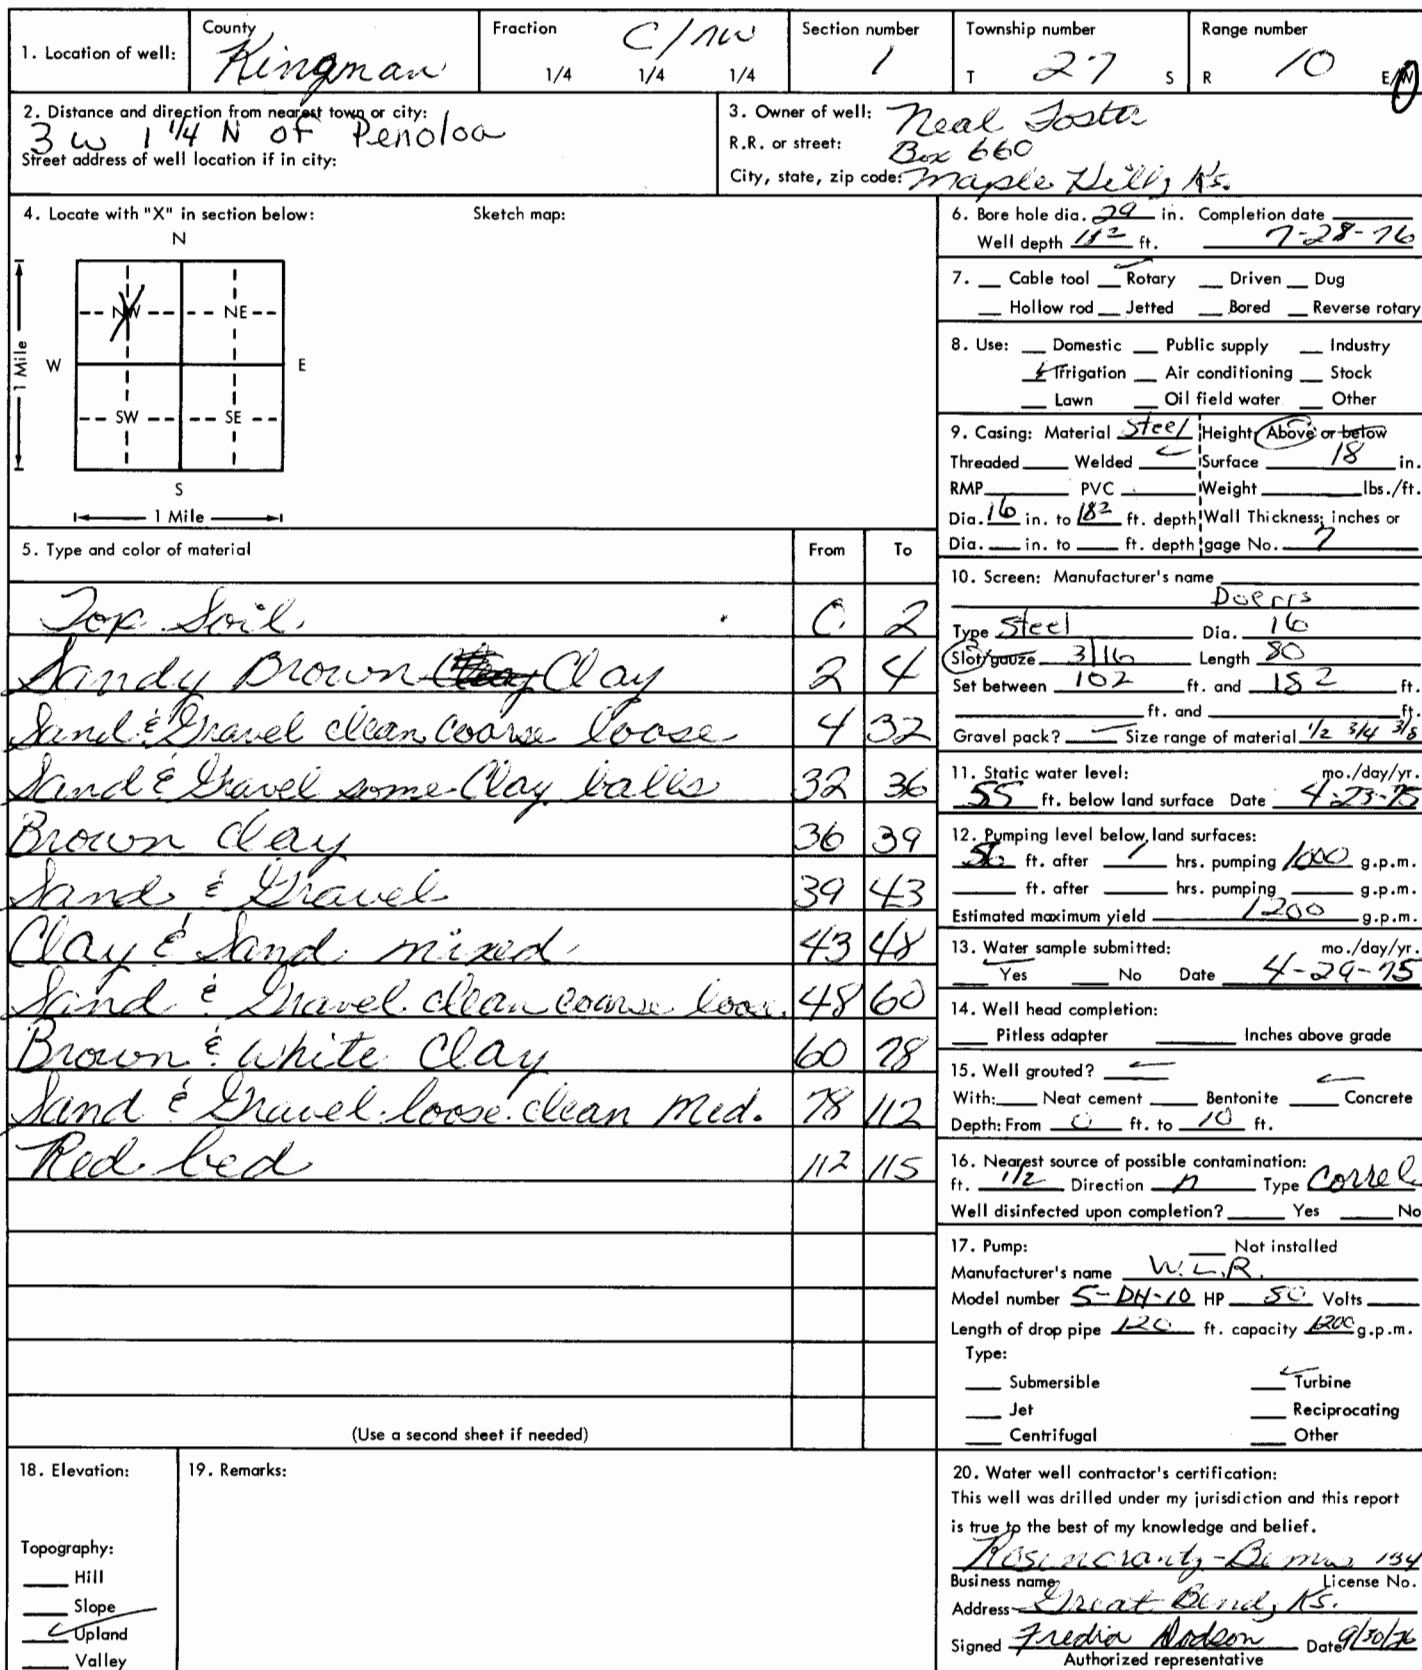 1. Location of well: County Kingman Fraction C/NW 1/4 1/4 1/4 Section number 1 Township number T 27 S Range number R 10 E/W
2. Distance and direction from nearest town or city:
3 w 1 1/4 N of Penoloa
Street address of well location if in city:
3. Owner of well: Neal Foster
R.R. or street: Box 660
City, state, zip code: Maple Hill, Ks.
4. Locate with "X" in section below: Sketch map:
N
NW NE
W E
1 Mile
SW SE
S
1 Mile
5. Type and color of material From To
Top Soil. 0 2
Sandy Brown Clay 2 4
Sand & Gravel clean coarse loose 4 32
Sand & Gravel some Clay balls 32 36
Brown Clay 36 39
Sand & Gravel 39 43
Clay & Sand mixed 43 48
Sand & Gravel clean coarse loose 48 60
Brown & white Clay 60 78
Sand & Gravel loose clean Med. 78 112
Red bed 112 115
(Use a second sheet if needed)
6. Bore hole dia. 29 in. Completion date
Well depth ft. 7-28-76
7. Cable tool Rotary Driven Dug
Hollow rod Jetted Bored Reverse rotary
8. Use: Domestic Public supply Industry
Irrigation Air conditioning Stock
Lawn Oil field water Other
9. Casing: Material Steel Height: Above or below
Threaded Welded Surface 18 in.
RMP PVC Weight lbs./ft.
Dia. 16 in. to 182 ft. depth Wall Thickness: inches or
Dia. in. to ft. depth gage No. 7
10. Screen: Manufacturer's name
Doerrs
Type Steel Dia. 16
Slot/gauze 3/16 Length 80
Set between 102 ft. and 182 ft.
ft. and ft.
Gravel pack? Size range of material 1/2 3/4 3/8
11. Static water level: mo./day/yr.
55 ft. below land surface Date 4-23-75
12. Pumping level below land surfaces:
56 ft. after 1 hrs. pumping 1000 g.p.m.
ft. after hrs. pumping g.p.m.
Estimated maximum yield 1200 g.p.m.
13. Water sample submitted: mo./day/yr.
Yes No Date 4-29-75
14. Well head completion:
Pitless adapter Inches above grade
15. Well grouted?
With: Neat cement Bentonite Concrete
Depth: From 0 ft. to 10 ft.
16. Nearest source of possible contamination:
ft. 1/2 Direction n Type Correl
Well disinfected upon completion? Yes No
17. Pump: Not installed
Manufacturer's name W.L.R.
Model number 5-DH-10 HP 50 Volts
Length of drop pipe 120 ft. capacity 1200 g.p.m.
Type:
Submersible Turbine
Jet Reciprocating
Centrifugal Other
18. Elevation:
Topography:
Hill
Slope
Upland
Valley
19. Remarks:
20. Water well contractor's certification:
This well was drilled under my jurisdiction and this report
is true to the best of my knowledge and belief.
Rosencrantz-Bemis 134
Business name License No.
Address Great Bend, Ks.
Signed Fredia Dodson Date 9/30/76
Authorized representative